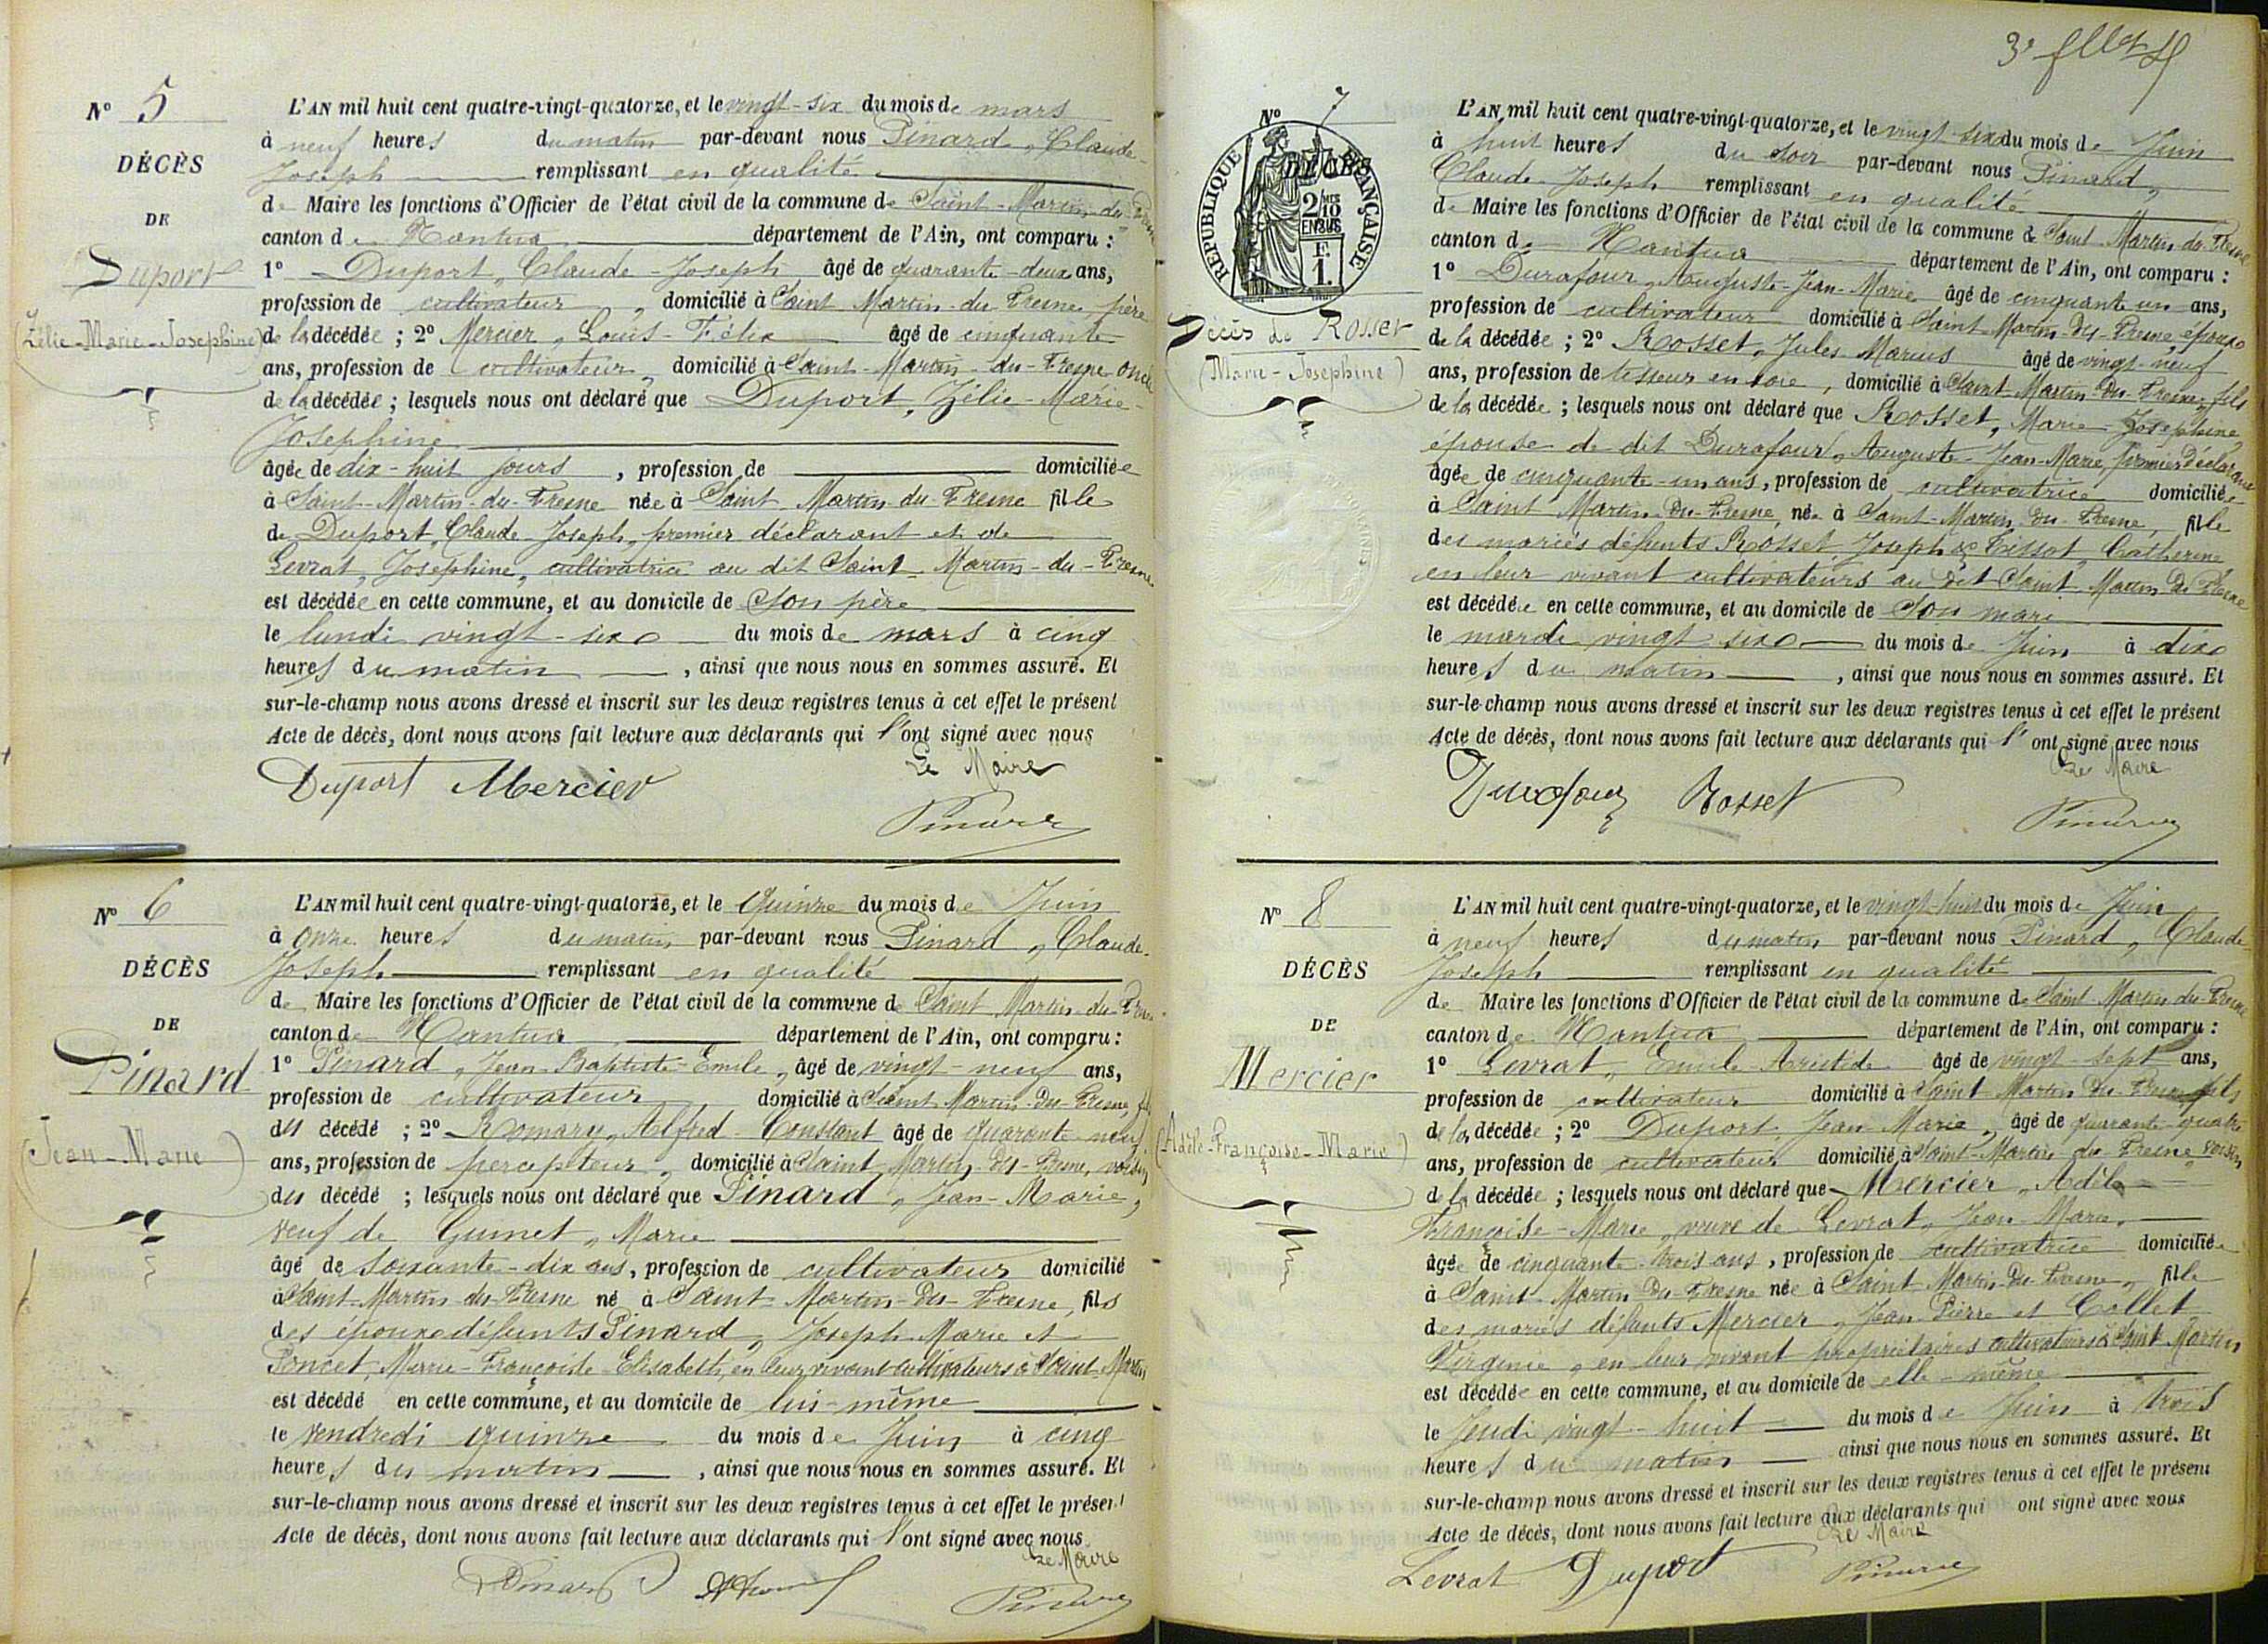 N° 5
DÉCÈS
DE
Duport
(Zélie-Marie-Josephine)
L'AN mil huit cent quatre-vingt-quatorze, et le vingt-six du mois de mars
à neuf heures du matin par-devant nous Pinard, Claude-
Joseph remplissant en qualité
de Maire les fonctions d'Officier de l'état civil de la commune de Saint-Martin-du-Fresne
canton de Nantua département de l'Ain, ont comparu :
1° Duport, Claude-Joseph âgé de quarante-deux ans,
profession de cultivateur, domicilié à Saint Martin-du-Fresne, père
de la décédée ; 2° Mercier, Louis-Félix âgé de cinquante
ans, profession de cultivateur, domicilié à Saint-Martin-du-Fresne, oncle
de la décédée ; lesquels nous ont déclaré que Duport, Zélie-Marie-
Josephine
âgée de dix-huit jours, profession de domiciliée
à Saint-Martin-du-Fresne née à Saint Martin-du-Fresne fille
de Duport, Claude-Joseph, premier déclarant et de
Levrat, Josephine, cultivatrice au dit Saint-Martin-du-Fresne
est décédée en cette commune, et au domicile de son père
le lundi vingt-six du mois de mars à cinq
heures du matin, ainsi que nous nous en sommes assuré. Et
sur-le-champ nous avons dressé et inscrit sur les deux registres tenus à cet effet le présent
Acte de décès, dont nous avons fait lecture aux déclarants qui l'ont signé avec nous
Le Maire
Duport Mercier
Pinard
N° 6
DÉCÈS
DE
Pinard
(Jean-Marie)
L'AN mil huit cent quatre-vingt-quatorze, et le quinze du mois de Juin
à onze heures du matin par-devant nous Pinard, Claude-
Joseph remplissant en qualité
de Maire les fonctions d'Officier de l'état civil de la commune de Saint Martin-du-Fresne
canton de Nantua département de l'Ain, ont comparu :
1° Pinard, Jean-Baptiste-Emile, âgé de vingt-neuf ans,
profession de cultivateur domicilié à Saint Martin-du-Fresne, fils
du décédé ; 2° Romary, Alfred-Constant âgé de quarante-neuf
ans, profession de percepteur, domicilié à Saint Martin-du-Fresne, voisin
du décédé ; lesquels nous ont déclaré que Pinard, Jean-Marie,
veuf de Guinet, Marie
âgé de soixante-dix ans, profession de cultivateur domicilié
à Saint-Martin-du-Fresne né à Saint Martin-du-Fresne, fils
des époux défunts Pinard, Joseph Marie et
Poncet, Marie-Françoise-Elisabeth, en leur vivant cultivateurs à Saint Martin
est décédé en cette commune, et au domicile de lui-même
le vendredi quinze du mois de Juin à cinq
heures du matin, ainsi que nous nous en sommes assuré. Et
sur-le-champ nous avons dressé et inscrit sur les deux registres tenus à cet effet le présent
Acte de décès, dont nous avons fait lecture aux déclarants qui l'ont signé avec nous
Le Maire
Pinard
Pinard
3e
N° 7
DÉCÈS
RÉPUBLIQUE FRANÇAISE
2/10 EN SUS
F. 1.
Décès de Rosset
(Marie-Josephine)
L'AN mil huit cent quatre-vingt-quatorze, et le vingt six du mois de Juin
à huit heures du soir par-devant nous Pinard,
Claude-Joseph remplissant en qualité
de Maire les fonctions d'Officier de l'état civil de la commune de Saint Martin-du-Fresne
canton de Nantua département de l'Ain, ont comparu :
1° Durafour, Auguste-Jean-Marie âgé de cinquante un ans,
profession de cultivateur domicilié à Saint-Martin-du-Fresne, époux
de la décédée ; 2° Rosset, Jules Marius âgé de vingt-neuf
ans, profession de tisseur en soie, domicilié à Saint Martin-du-Fresne, fils
de la décédée ; lesquels nous ont déclaré que Rosset, Marie-Josephine,
épouse de dit Durafour, Auguste-Jean-Marie, premier déclarant
âgée de cinquante-un ans, profession de cultivatrice domiciliée
à Saint Martin-du-Fresne, née à Saint-Martin-du-Fresne, fille
des mariés défunts Rosset, Joseph & Tissot, Catherine
en leur vivant cultivateurs au dit Saint Martin du Fresne
est décédée en cette commune, et au domicile de son mari
le mardi vingt-six du mois de Juin à dix
heures du matin, ainsi que nous nous en sommes assuré. Et
sur-le-champ nous avons dressé et inscrit sur les deux registres tenus à cet effet le présent
Acte de décès, dont nous avons fait lecture aux déclarants qui l'ont signé avec nous
Le Maire
Durafour Rosset
Pinard
N° 8
DÉCÈS
DE
Mercier
(Adèle-Françoise-Marie)
L'AN mil huit cent quatre-vingt-quatorze, et le vingt-huit du mois de Juin
à neuf heures du matin par-devant nous Pinard, Claude
Joseph remplissant en qualité
de Maire les fonctions d'Officier de l'état civil de la commune de Saint Martin-du-Fresne
canton de Nantua département de l'Ain, ont comparu :
1° Levrat, Emile Aristide âgé de vingt-sept ans,
profession de cultivateur domicilié à Saint Martin-du-Fresne fils
de la décédée ; 2° Duport, Jean Marie, âgé de quarante-quatre
ans, profession de cultivateur domicilié à Saint-Martin-du-Fresne, voisin
de la décédée ; lesquels nous ont déclaré que Mercier, Adèle
Françoise-Marie, veuve de Levrat, Jean-Marie,
âgée de cinquante-trois ans, profession de cultivatrice domiciliée
à Saint-Martin-du-Fresne née à Saint Martin-du-Fresne, fille
des mariés défunts Mercier, Jean-Pierre et Collet
Virginie, en leur vivant propriétaires cultivateurs à Saint Martin
est décédée en cette commune, et au domicile de elle-même
le Jeudi vingt-huit du mois de Juin à trois
heures du matin ainsi que nous nous en sommes assuré. Et
sur-le-champ nous avons dressé et inscrit sur les deux registres tenus à cet effet le présent
Acte de décès, dont nous avons fait lecture aux déclarants qui ont signé avec nous
Le Maire
Levrat Duport
Pinard